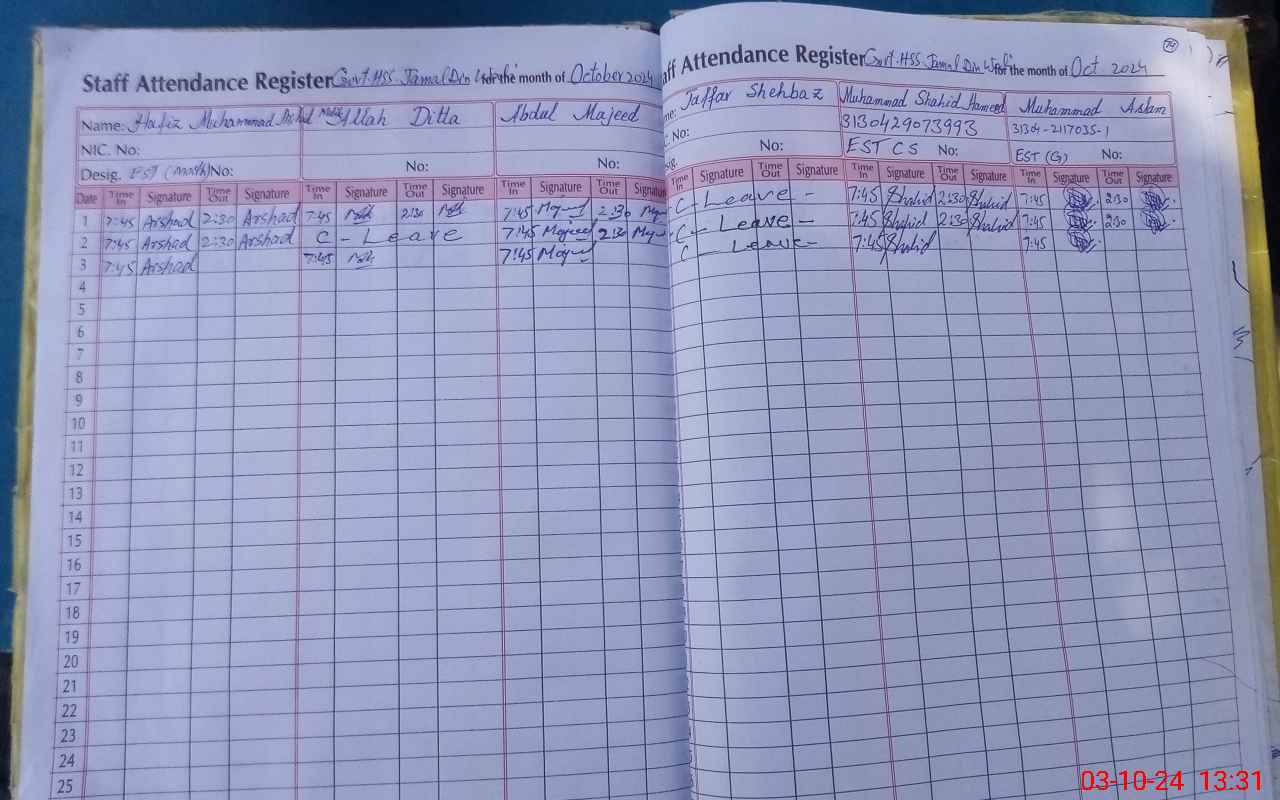 Staff Attendance Register Govt. HSS Jamal Din Wali for the month of October 2024
Name: Hafiz Muhammad Arshad Malik Allah Ditta Abdul Majeed
NIC. No:
Desig. EST (Math) No: No: No:
Date Time In Signature Time Out Signature Time In Signature Time Out Signature Time In Signature Time Out Signature
1 7:45 Arshad 2:30 Arshad 7:45 2:30 7:45 Majeed 2:30
2 7:45 Arshad 2:30 Arshad C - Leave 7:45 Majeed 2:30
3 7:45 Arshad 7:45 7:45 Majeed
4
5
6
7
8
9
10
11
12
13
14
15
16
17
18
19
20
21
22
23
24
25
74
aff Attendance Register Govt. HSS Jamal Din Wali for the month of Oct 2024
me: Jaffar Shehbaz Muhammad Shahid Hameed Muhammad Aslam
C. No: 3130429073993 31304-2117035-1
sig. No: EST CS No: EST (G) No:
Time In Signature Time Out Signature Time In Signature Time Out Signature Time In Signature Time Out Signature
C - Leave - 7:45 Shahid 2:30 Shahid 7:45 2:30
C - Leave - 7:45 Shahid 2:30 Shahid 7:45 2:30
C - Leave - 7:45 Shahid 7:45
03-10-24 13:31